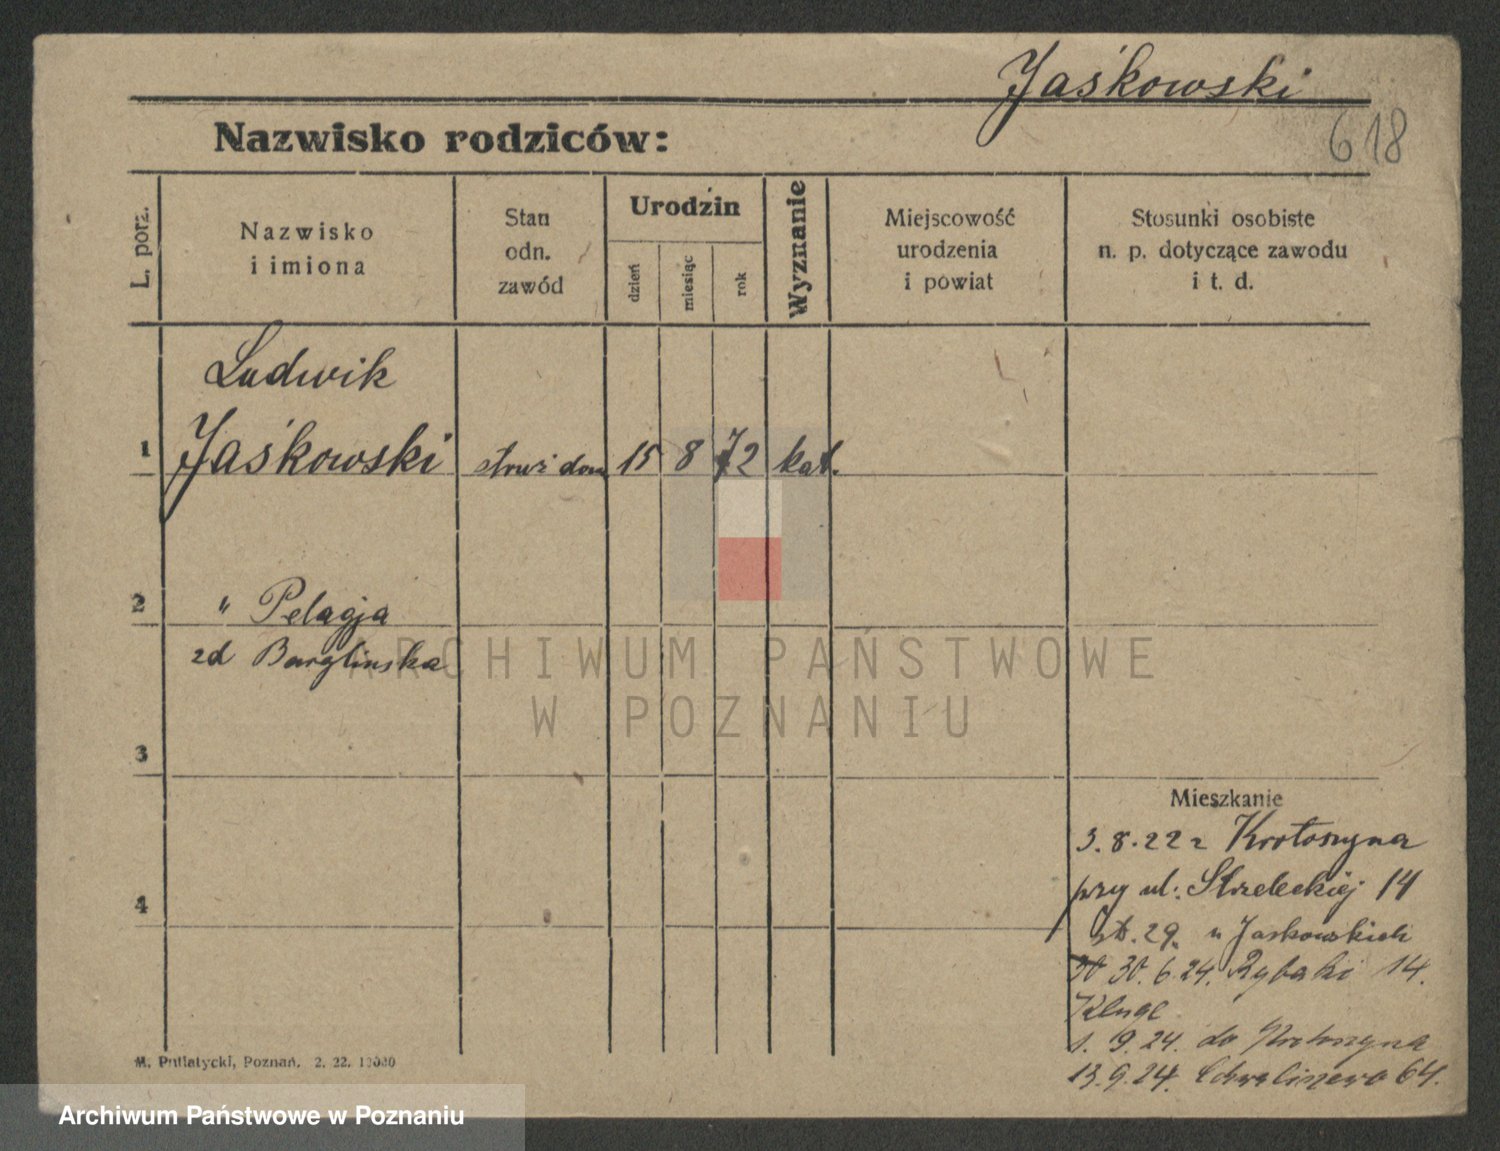 Jaśkowski
618
Nazwisko rodziców:
L. porz.
Nazwisko
i imiona
Stan
odn.
zawód
Urodzin
dzień
miesiąc
rok
Wyznanie
Miejscowość
urodzenia
i powiat
Stosunki osobiste
n. p. dotyczące zawodu
i t. d.
Ludwik
1 Jaśkowski stróż dom 15 8 72 kat.
2 " Pelagja
zd Barglinska
3
4
Mieszkanie
3.8.22 z Krotoszyna
przy ul. Strzeleckiej 14
29. u Jaskowskich
30.6.24. Rybaki 14.
Kluge
1.9.24. do Krotoszyna
13.9.24. Chwaliszewo 64.
M. Putiatycki, Poznań. 2. 22.
ARCHIWUM PAŃSTWOWE
W POZNANIU
Archiwum Państwowe w Poznaniu